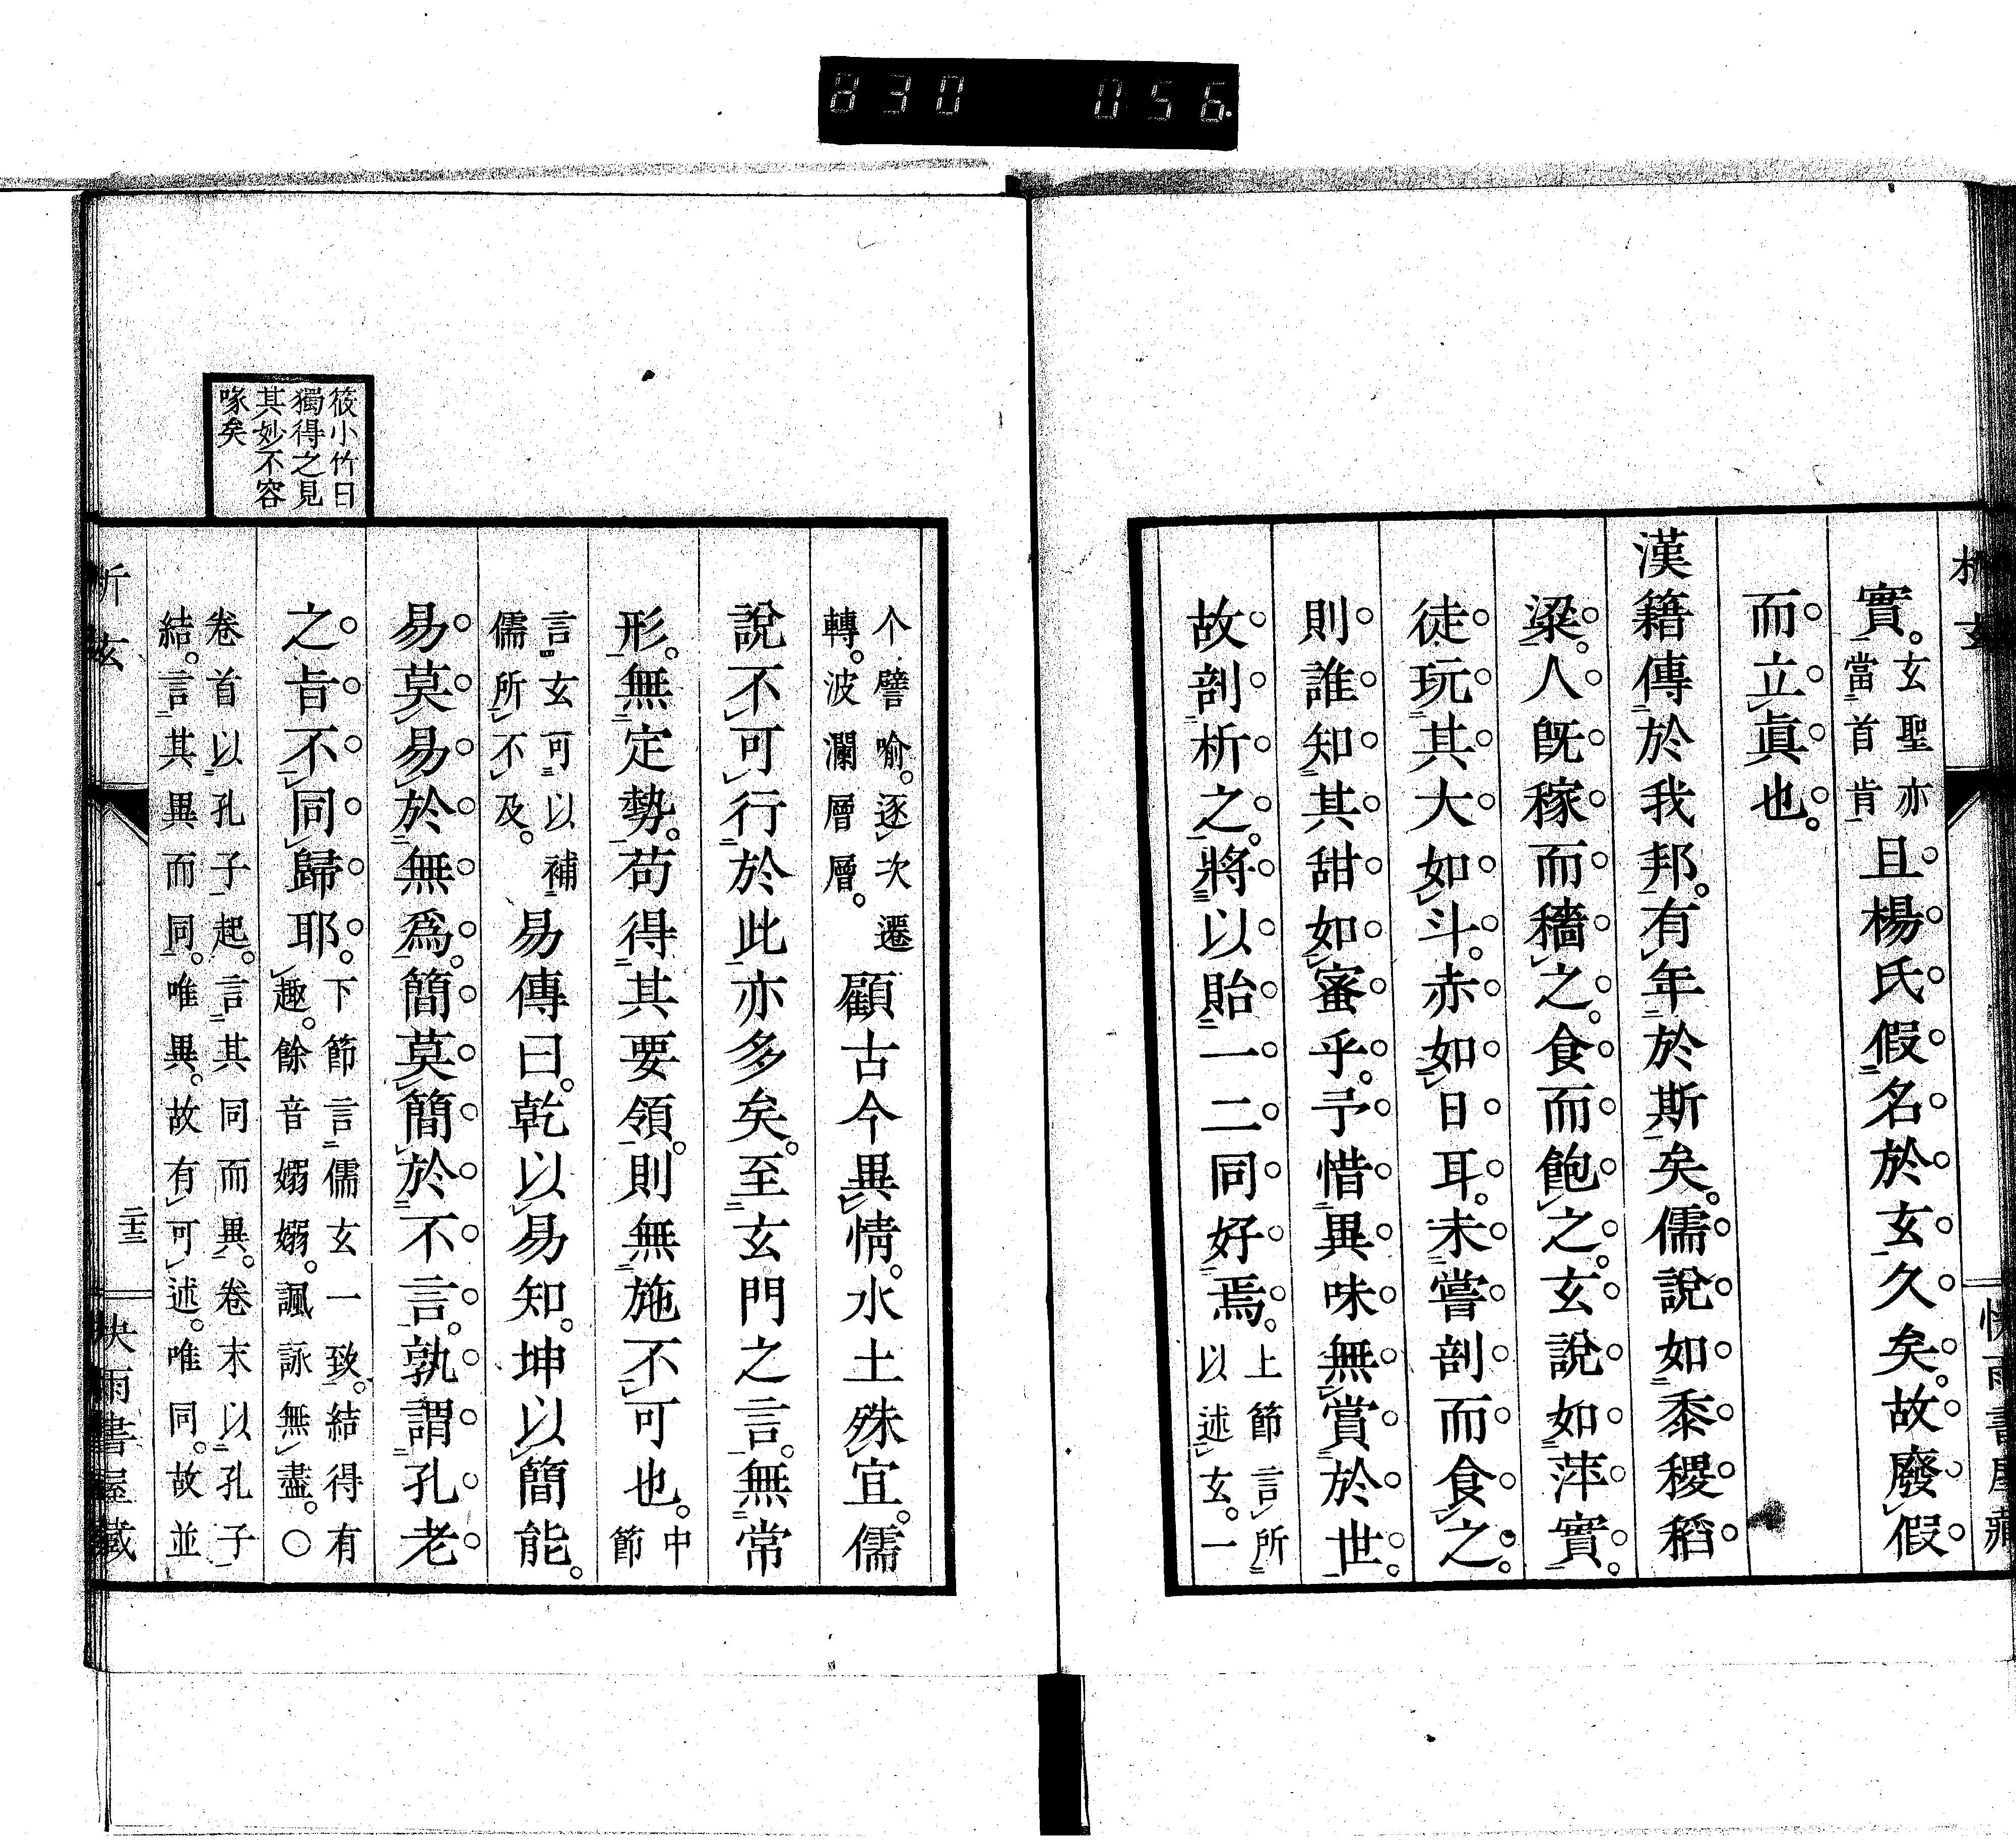 830 056
析玄
快雨書屋藏
實。玄聖亦當首肯且楊氏假名於玄久矣。故廢假
而立眞也。
漢籍傳於我邦。有年於斯矣。儒說如黍稷稻
粱。人旣稼而穡之。食而飽之。玄說如萍實。
徒玩其大如斗。赤如日耳。未嘗剖而食之。
則誰知其甜如蜜乎。予惜異味無賞於世。
故剖析之。將以貽一二同好焉。上節言所以述玄。一
个譬喻。逐次遷轉。波瀾層層。顧古今異情。水土殊宜。儒
說不可行於此亦多矣。至玄門之言。無常
形。無定勢。苟得其要領。則無施不可也。中節
言玄可以補儒所不及。易傳曰。乾以易知。坤以簡能。
易莫易於無爲。簡莫簡於不言。孰謂孔老
之旨不同歸耶。下節言儒玄一致。結得有趣。餘音嫋嫋。諷詠無盡。○
卷首以孔子起。言其同而異。卷末以孔子結。言其異而同。唯異。故有可述。唯同。故並
筱小竹曰
獨得之見
其妙不容
喙矣
析玄
二十三
快雨書屋藏